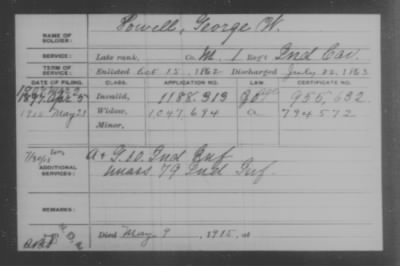 NAME OF SOLDIER: Howell, George W.
SERVICE: Late rank, Co. M. 1 Reg't Ind Cav.
TERM OF SERVICE: Enlisted Oct 15, 1862 Discharged July 22, 1863
DATE OF FILING. CLASS. APPLICATION NO. LAW. CERTIFICATE NO.
1897 Apr 5 Invalid, 1188.313 955,632
1915 May 21 Widow, 1.047.694 794572
Minor,
ADDITIONAL SERVICES: A + G. 10. Ind Inf
unass. 79 Ind Inf.
REMARKS:
Died May 9, 1915, at